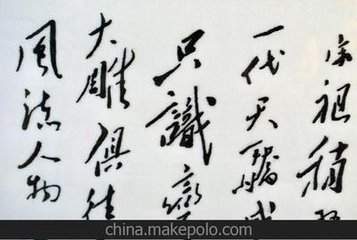 宋祖稍
一代天驕成
只識彎
大雕俱往
風流人物
china.makepolo.com